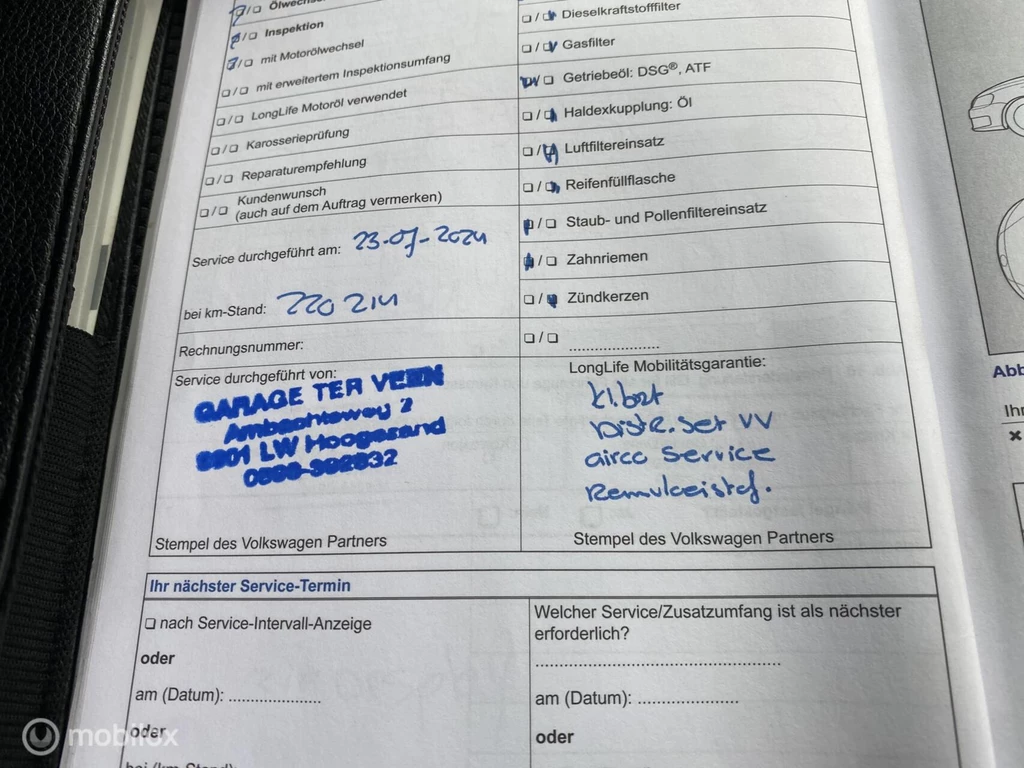 ❏ / ❏ Ölwechsel
❏ / ❏ Inspektion
❏ / ❏ mit Motorölwechsel
❏ / ❏ mit erweitertem Inspektionsumfang
❏ / ❏ LongLife Motoröl verwendet
❏ / ❏ Karosserieprüfung
❏ / ❏ Reparaturempfehlung
❏ / ❏ Kundenwunsch
(auch auf dem Auftrag vermerken)
Service durchgeführt am: 23-07-2024
bei km-Stand: 220 214
Rechnungsnummer:
Service durchgeführt von:
GARAGE TER VEEN
Ambachtsweg 2
LW Hoogezand
❏ / ❏ Dieselkraftstofffilter
❏ / ❏ Gasfilter
❏ / ❏ Getriebeöl: DSG®, ATF
❏ / ❏ Haldexkupplung: Öl
❏ / ❏ Luftfiltereinsatz
❏ / ❏ Reifenfüllflasche
❏ / ❏ Staub- und Pollenfiltereinsatz
❏ / ❏ Zahnriemen
❏ / ❏ Zündkerzen
❏ / ❏ ....................
LongLife Mobilitätsgarantie:
kl.brt
Distr.set VV
airco Service
Remvloeistof.
Stempel des Volkswagen Partners
Stempel des Volkswagen Partners
Ihr nächster Service-Termin
❏ nach Service-Intervall-Anzeige
oder
am (Datum): ....................
oder
bei (km-Stand):
Welcher Service/Zusatzumfang ist als nächster
erforderlich?
..................................................
am (Datum): ....................
oder
Abb
Ihr
mobilox